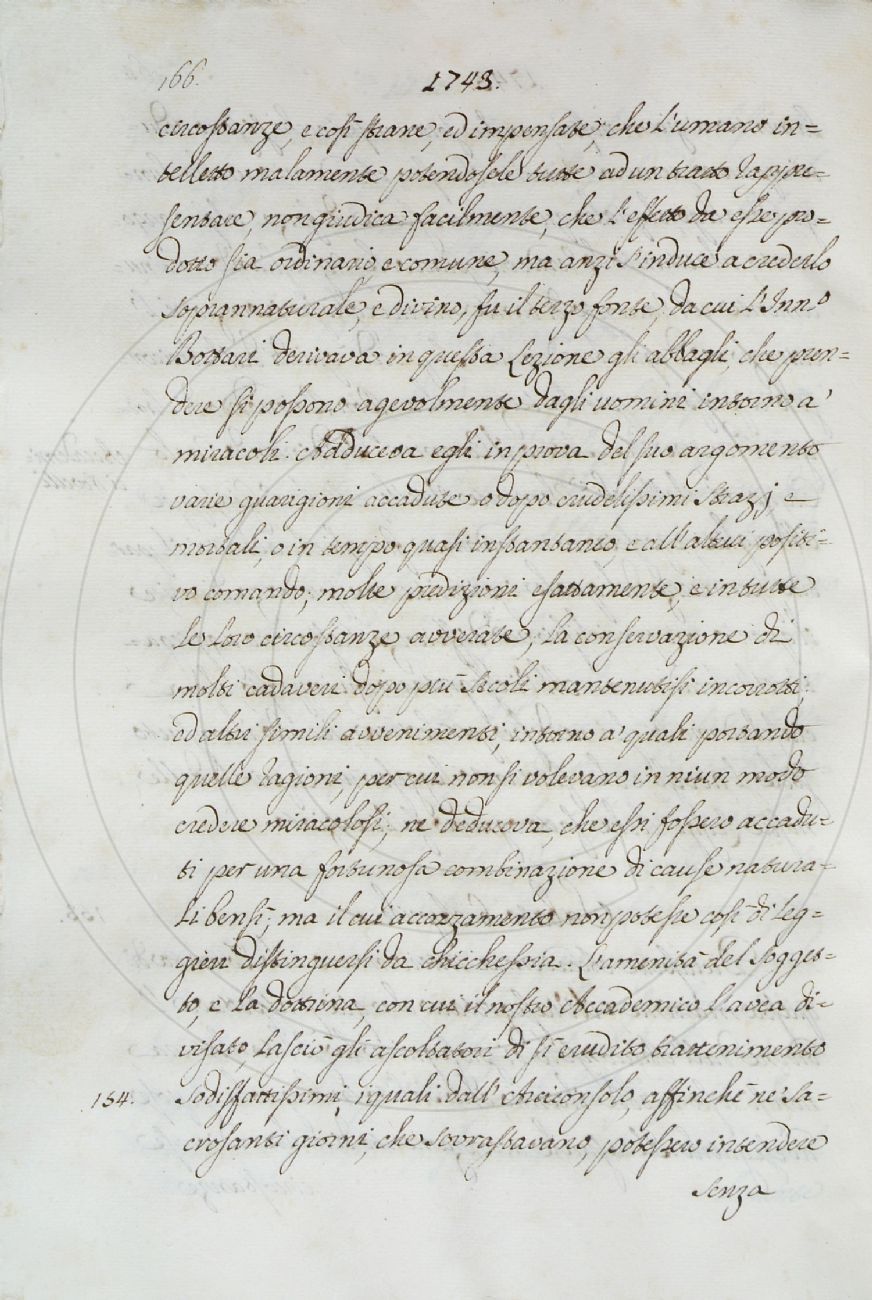 166.
1743.
circostanze, e così strane, ed impensate, che l'umano in=
telletto malamente potendosele tutte ad un tratto rappre=
sentare, non giudica facilmente, che l'effetto da esse pro=
dotto sia ordinario, e comune, ma anzi s'induce a crederlo
soprannaturale, e divino, fu il terzo fonte, da cui l'Inn.o
Bottari derivava in questa Lezione gli abbagli, che pren=
dere si possono agevolmente dagli uomini intorno a'
miracoli. Adduceva egli in prova del suo argomento
varie guarigioni accadute o dopo crudelissimi strazj e
mortali, o in tempo quasi instantaneo, e all'altrui positi=
vo comando; molte predizioni esattamente, e in tutte
le loro circostanze avverate; la conservazione di
molti cadaveri dopo più secoli mantenutisi incorrotti;
ed altri simili avvenimenti, intorno a' quali portando
quelle ragioni, per cui non si volevano in niun modo
credere miracolosi; ne deduceva, che essi fossero accadu=
ti per una fortunosa combinazione di cause natura=
li bensì; ma il cui accozzamento non potesse così di leg=
gieri distinguersi da chicchessia. L'amenità del sogget=
to, e la dottrina, con cui il nostro Accademico l'avea di=
visato, lasciò gli ascoltatori di sì erudito trattenimento
154. sodisfattissimi, i quali dall'Arciconsolo, affinchè ne' sa=
crosanti giorni, che sovrastavano, potessero intendere
senza